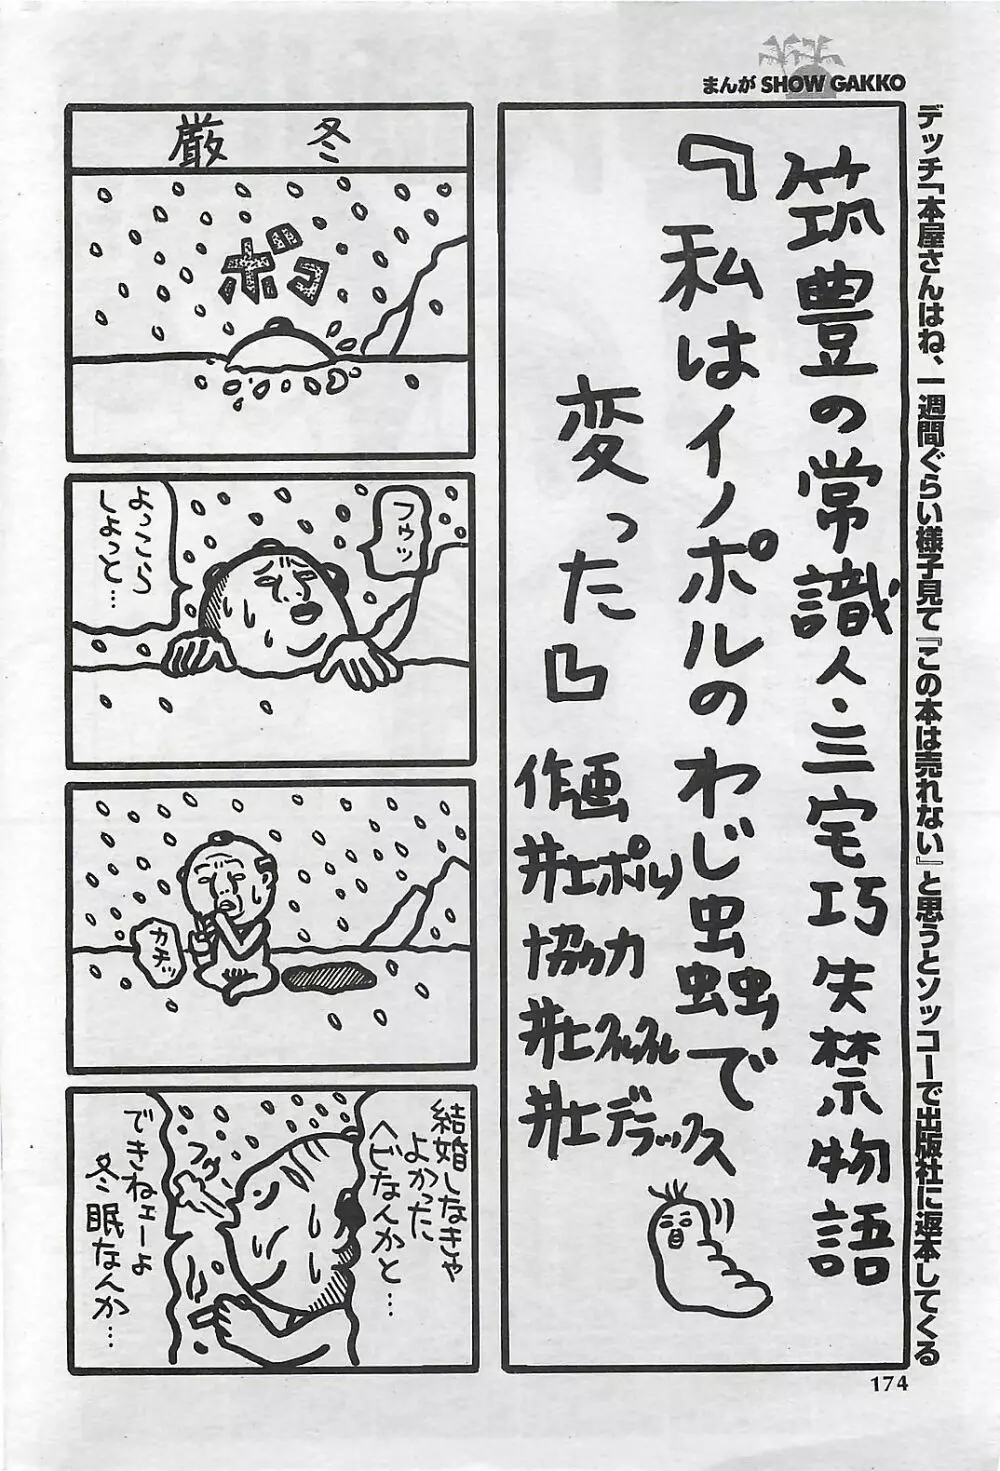 まんが SHOW GAKKO
デッチ「本屋さんはね、一週間ぐらい様子見て『この本は売れない』と思うとソッコーで出版社に返本してくる
筑豊の常識人・三宅巧失禁物語
『私はイノポルのわじ虫蟲で
変った』
作画
井上ポルノ
協力
井上クルクル
井上デラックス
厳冬
ボコ
フゥッ
よっこら
しょっと…
カチッ
結婚しなきゃ
よかった
ヘビなんかと…
フゥ
できねェーよ
冬眠なんか…
174